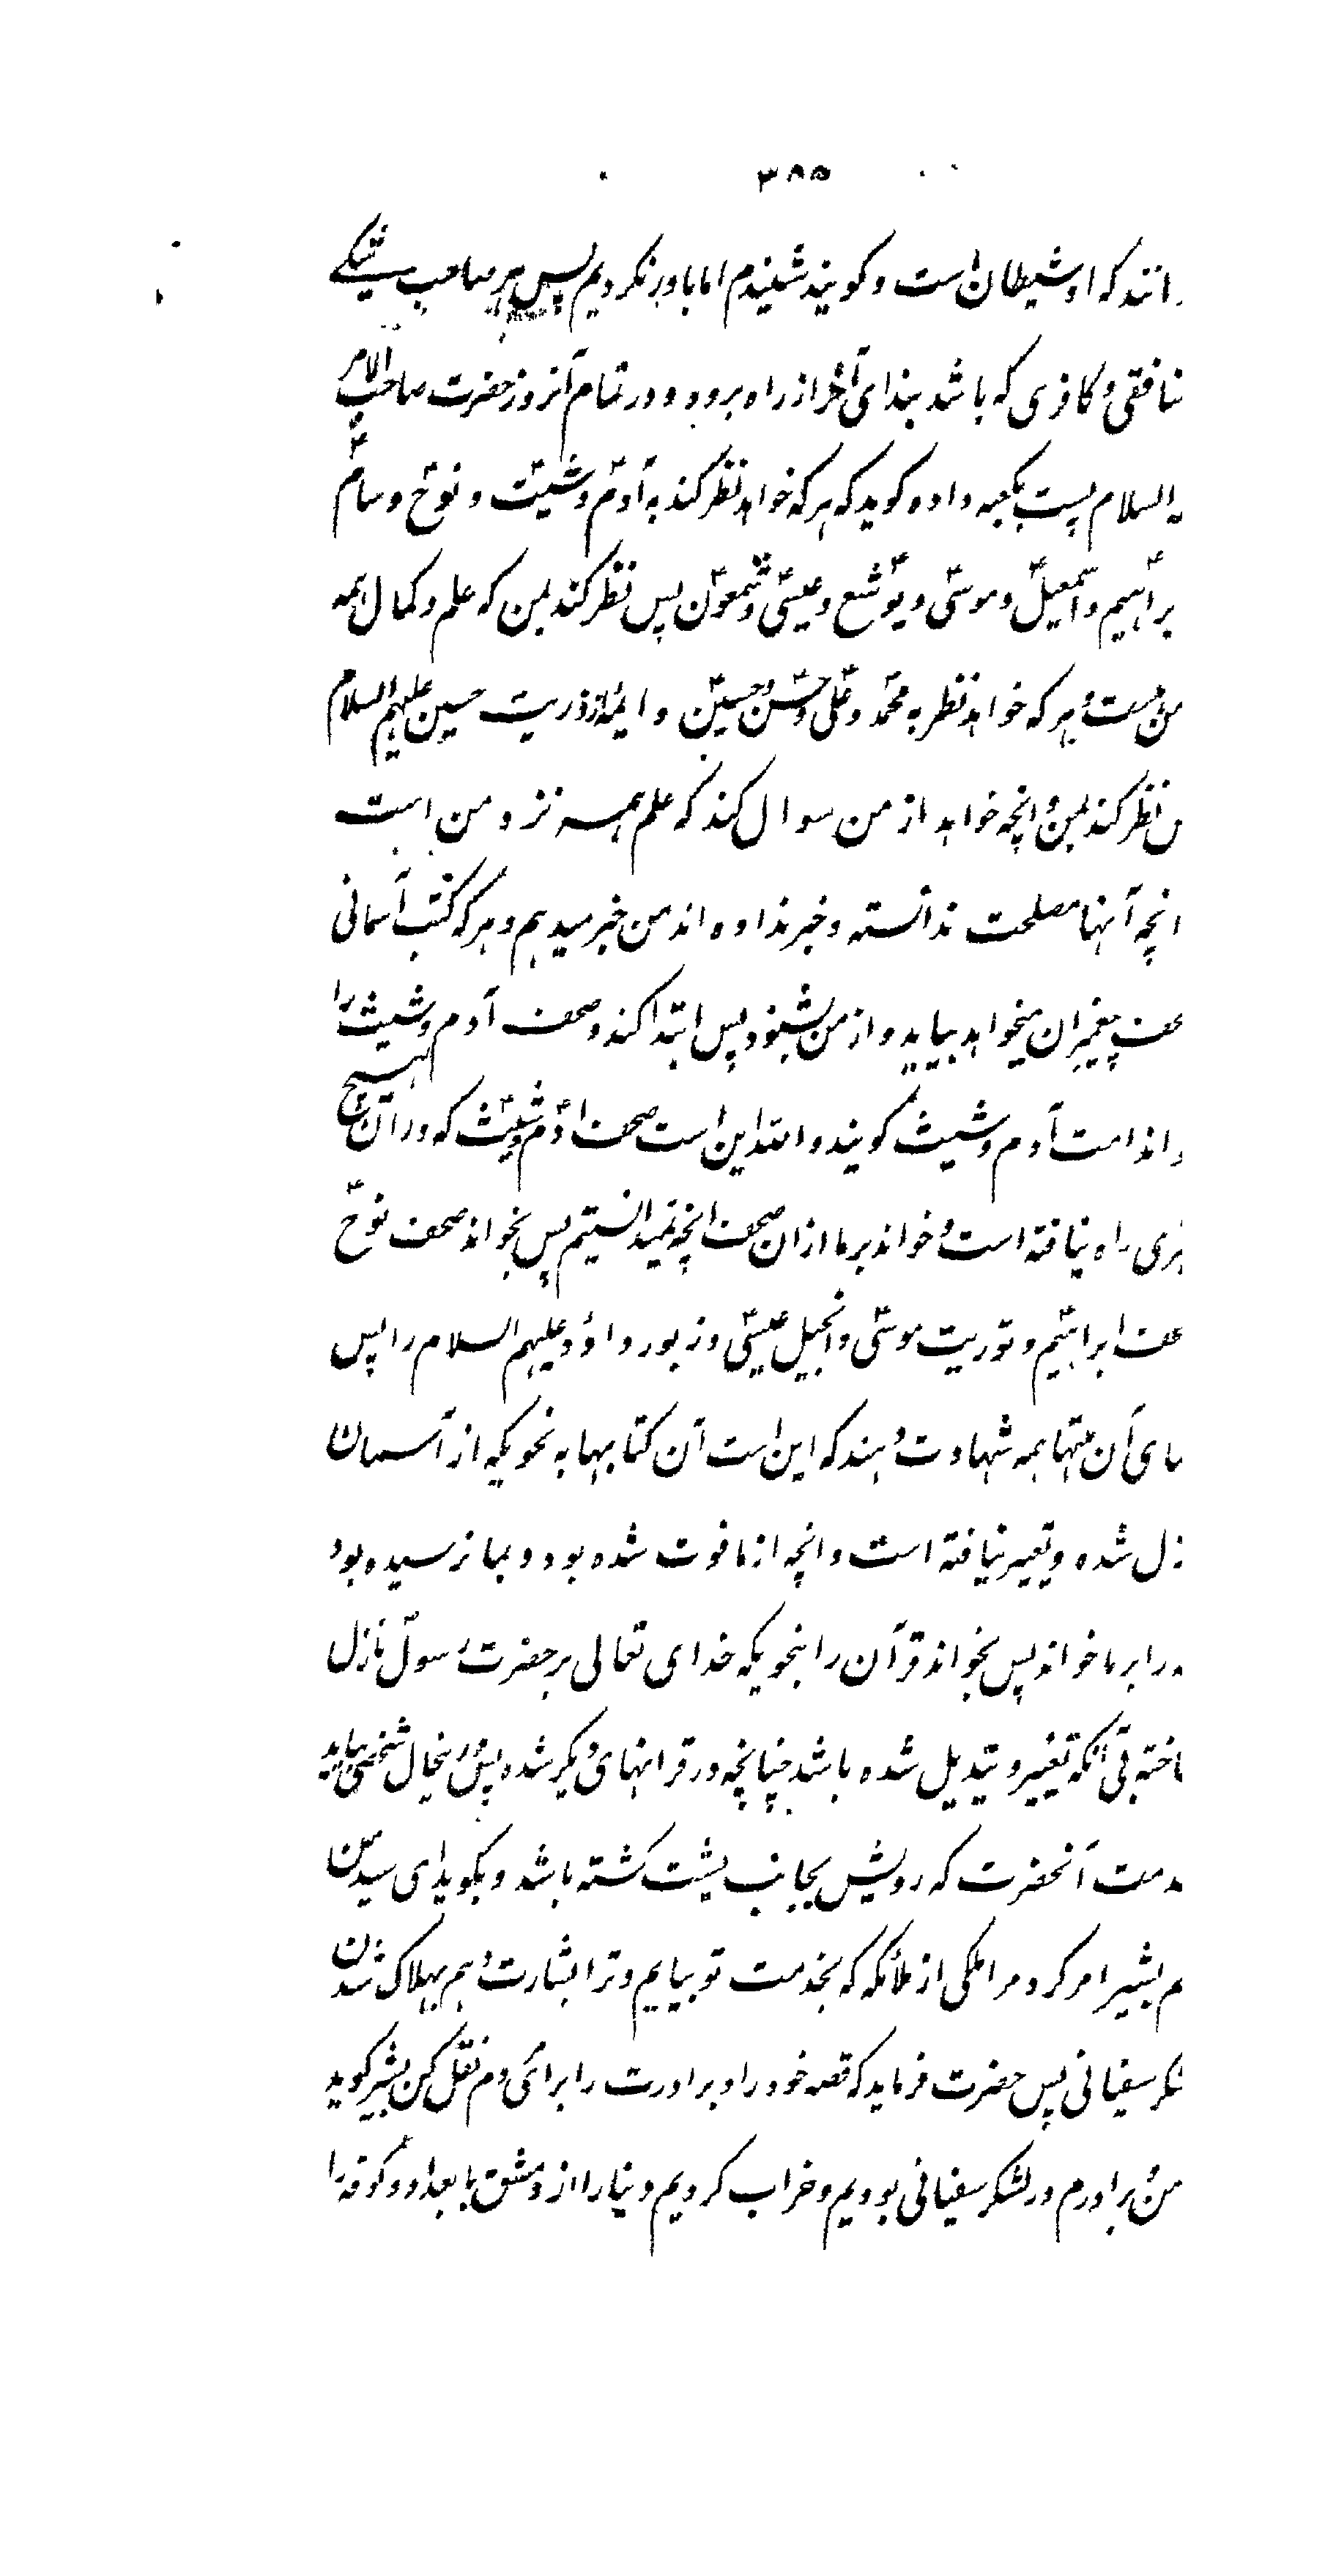 ۳۸۵
دانند که او شیطان است و کویند شنیدم اما باور نکردیم پس هر صاحب شکے
منافقی و کافری که باشد بندای آخر از راه برود و در تمام آنروز حضرت صاحب الامر
السلام پشت بکعبه داده کوید که هر که خواهد نظر کند به آدمؑ و شیثؑ و نوحؑ و سامؑ
براهیمؑ و اسمعیلؑ و موسیؑ و یوشعؑ و عیسیؑ و شمعونؑ پس نظر کند بمن که علم و کمال همه
من هست و هر که خواهد نظر به محمدؐ و علیؑ و حسنؑ و حسینؑ و ایمه از ذریت حسین علیهم السلام
نظر کند بمن و انچه خواهد از من سوال کند که علم همه نزد من است
انچه آنها مصلحت ندانسته و خبر نداده اند من خبر میدهم و هر که کتب آسمانی
صحف پیغمبران میخواهد بیاید و از من بشنود پس ابتدا کند و صحف آدم و شیث را
خواند امت آدم و شیث کویند والله این است صحف آدمؑ و شیثؑ که در آن هیچ
تغیری راه نیافته است و خواند بر ما ازان صحف انچه نمیدانستیم پس بخواند صحف نوحؑ
صحف ابراهیمؑ و توریت موسیؑ و انجیل عیسیؑ و زبور داؤد علیهم السلام را پس
علمای آن ملتها همه شهادت دهند که این است آن کتابها به نحویکه از آسمان
نازل شده و تغییر نیافته است و انچه از ما فوت شده بود و بما نرسیده بود
همه را بر ما خواند پس بخواند قرآن را بنحویکه خدای تعالی بر حضرت رسولؐ نازل
ساخته بی آنکه تغییر و تبدیل شده باشد چنانچه در قرانهای دیگر شده پس در ینحال شخصی بیاید
بخدمت آنحضرت که رویش بجانب پشت کشته باشد و بکوید ای سید من
منم بشیر امر کرد مرا ملکی از ملائکه که بخدمت تو بیایم و ترا بشارت دهم بهلاک شدن
لشکر سفیانی پس حضرت فرماید که قصه خود را و برادرت را برای مردم نقل کن بشیر کوید
من و برادرم در لشکر سفیانی بودیم و خراب کردیم دنیا را از دمشق تا بغداد و کوفه را